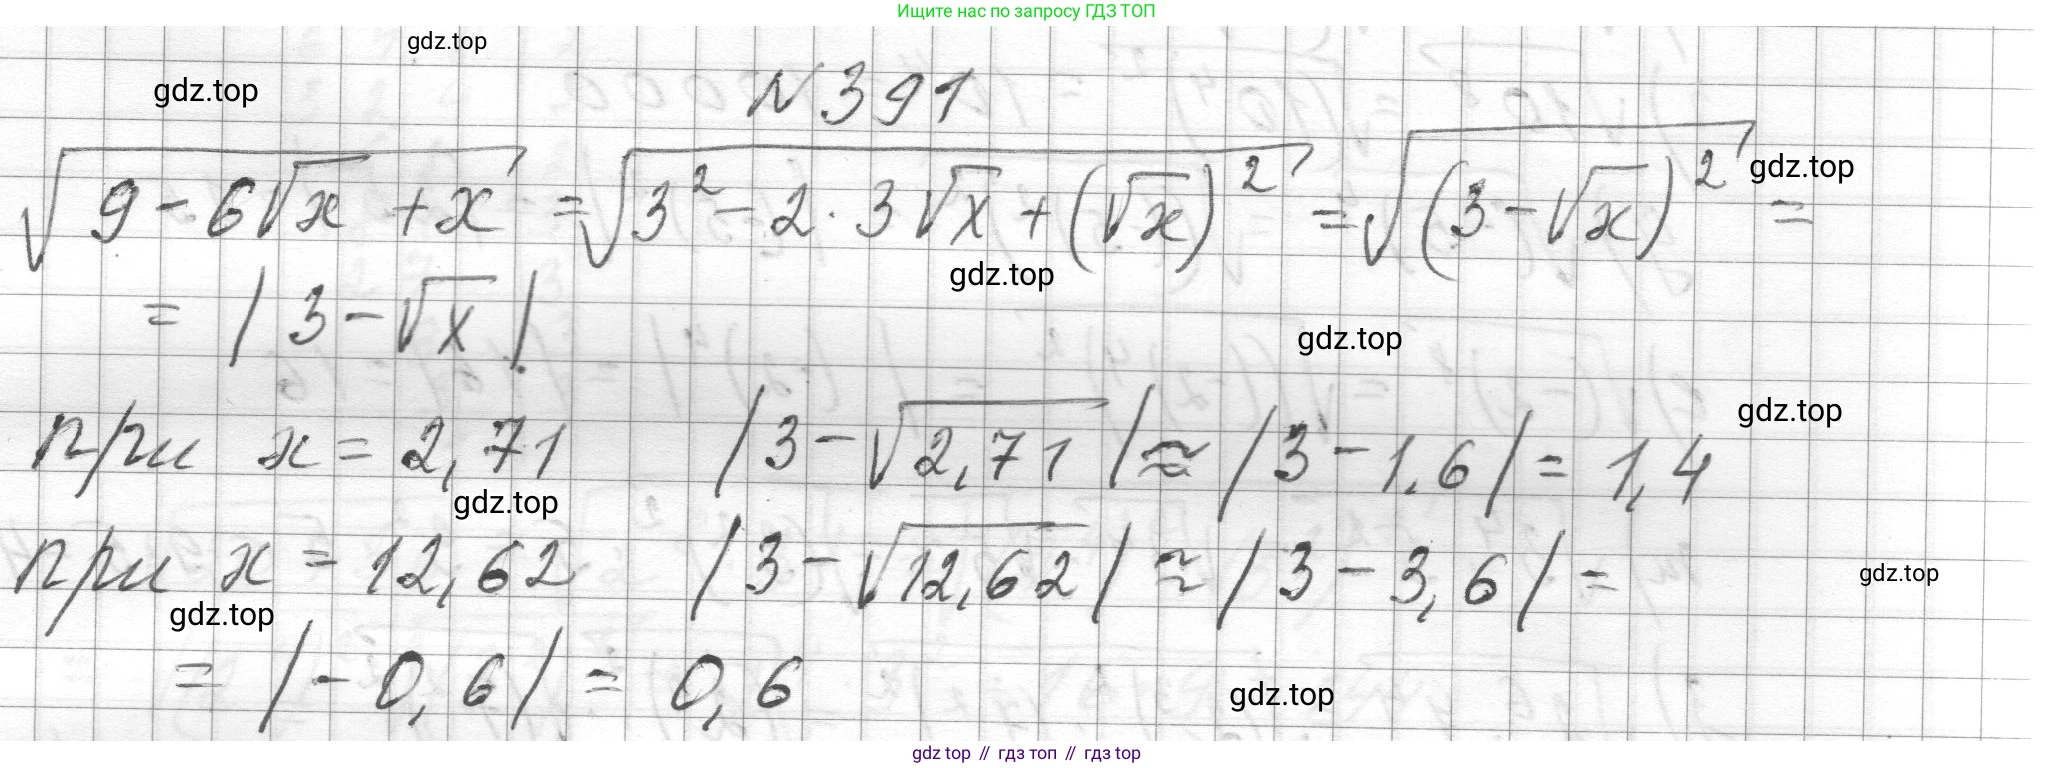 Ищите нас по запросу ГДЗ ТОП
gdz.top
gdz.top
N 391
√(9 - 6√x + x) = √(3² - 2 · 3√x + (√x)²) = √((3 - √x)²) =
gdz.top
gdz.top
= |3 - √x|
gdz.top
gdz.top
при x = 2,71 |3 - √2,71| ≈ |3 - 1,6| = 1,4
gdz.top
при x = 12,62 |3 - √12,62| ≈ |3 - 3,6| =
gdz.top
gdz.top
= |-0,6| = 0,6
gdz.top
gdz top // гдз топ // гдз top